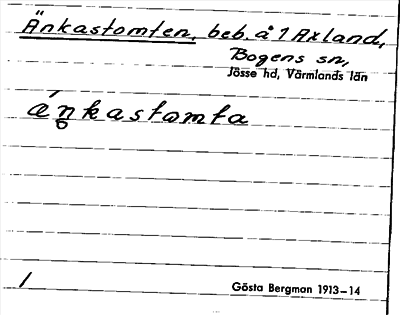 Änkastomten, beb. å 1 Axland,
Bogens sn,
Jösse hd, Värmlands län
áṇkastomta
1
Gösta Bergman 1913–14